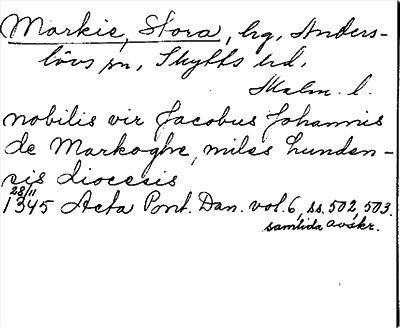 Markie, Stora, hg, Anders-
lövs sn, Skytts hd.
Malm. l.
nobilis vir Jacobus Johannis
de Markoghe, miles Lunden-
sis diocesis
28/11
1345 Acta Pont. Dan. vol. 6, ss. 502, 503.
samtida avskr.